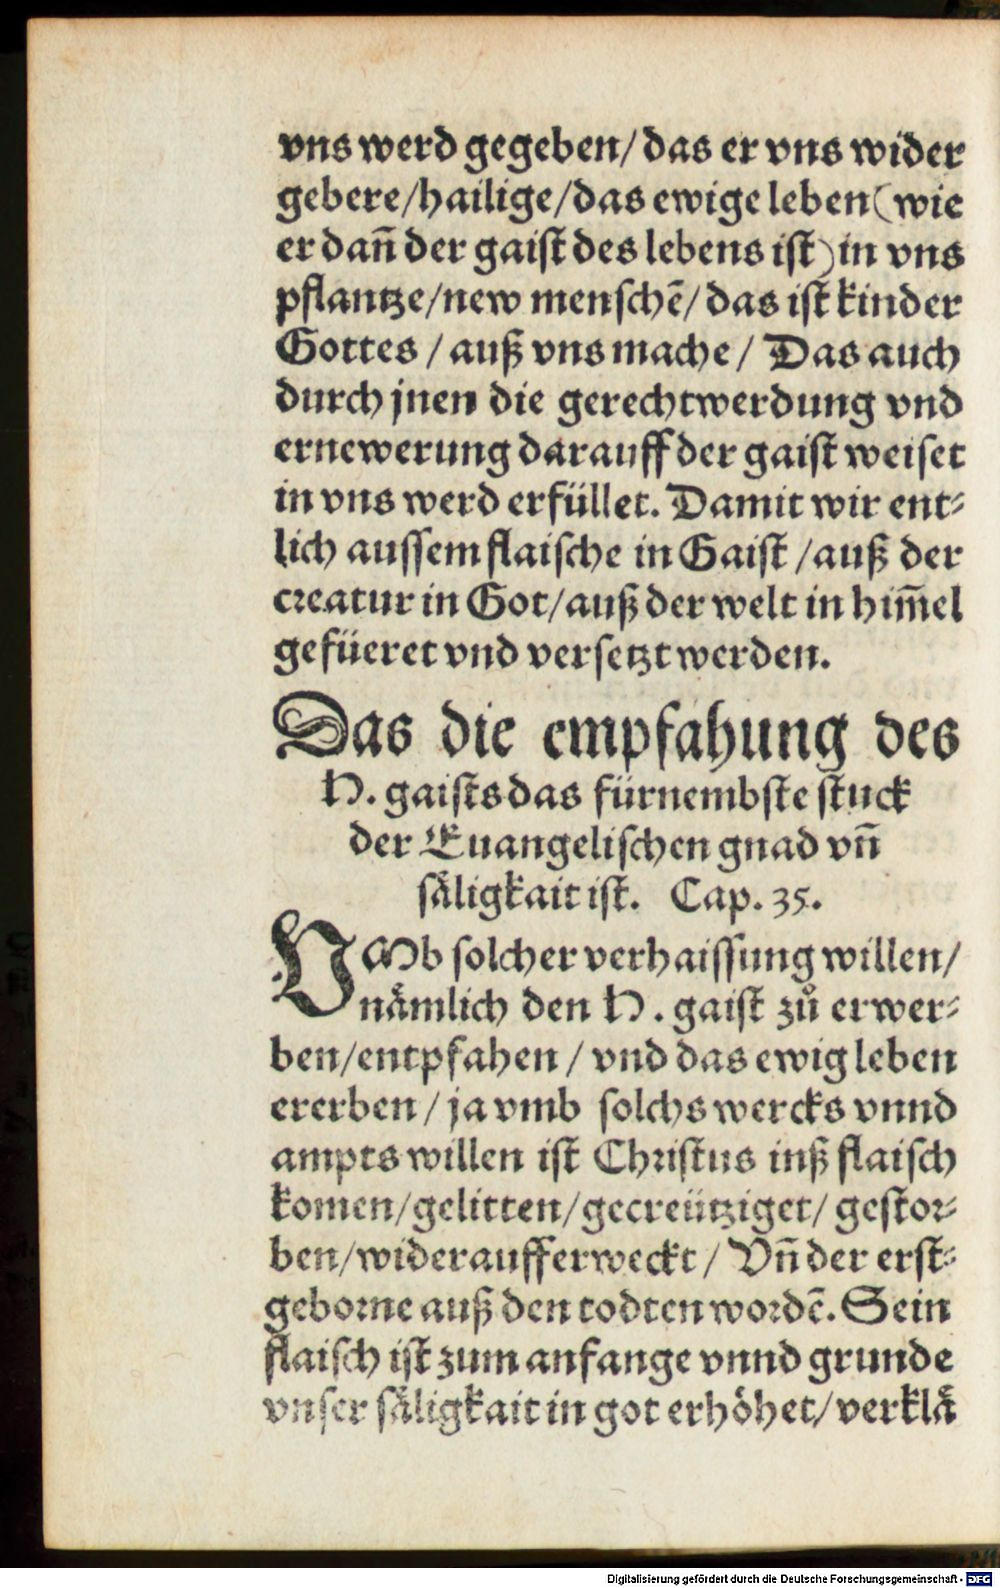 vns werd gegeben/das er vns wider
gebere/hailige/das ewige leben(wie
er dañ der gaist des lebens ist)in vns
pflantze/new menschē/das ist kinder
Gottes / auß vns mache / Das auch
durch jnen die gerechtwerdung vnd
ernewerung darauff der gaist weiset
in vns werd erfüllet. Damit wir ent⸗
lich aussem flaische in Gaist /auß der
creatur in Got/auß der welt in him̄el
gefüeret vnd versetzt werden.
Das die empfahung des
H. gaists das fürnembste stuck
der Euangelischen gnad vñ
säligkait ist. Cap. 35.
VMb solcher verhaissung willen/
nämlich den H. gaist zů erwer⸗
ben/entpfahen / vnd das ewig leben
ererben / ja vmb solchs wercks vnnd
ampts willen ist Christus inß flaisch
komen/gelitten/gecreütziget/ gestor⸗
ben/wider aufferweckt / Vñ der erst⸗
geborne auß den todten wordē. Sein
flaisch ist zum anfange vnnd grunde
vnser säligkait in got erhöhet/verklä
Digitalisierung gefördert durch die Deutsche Forschungsgemeinschaft - DFG